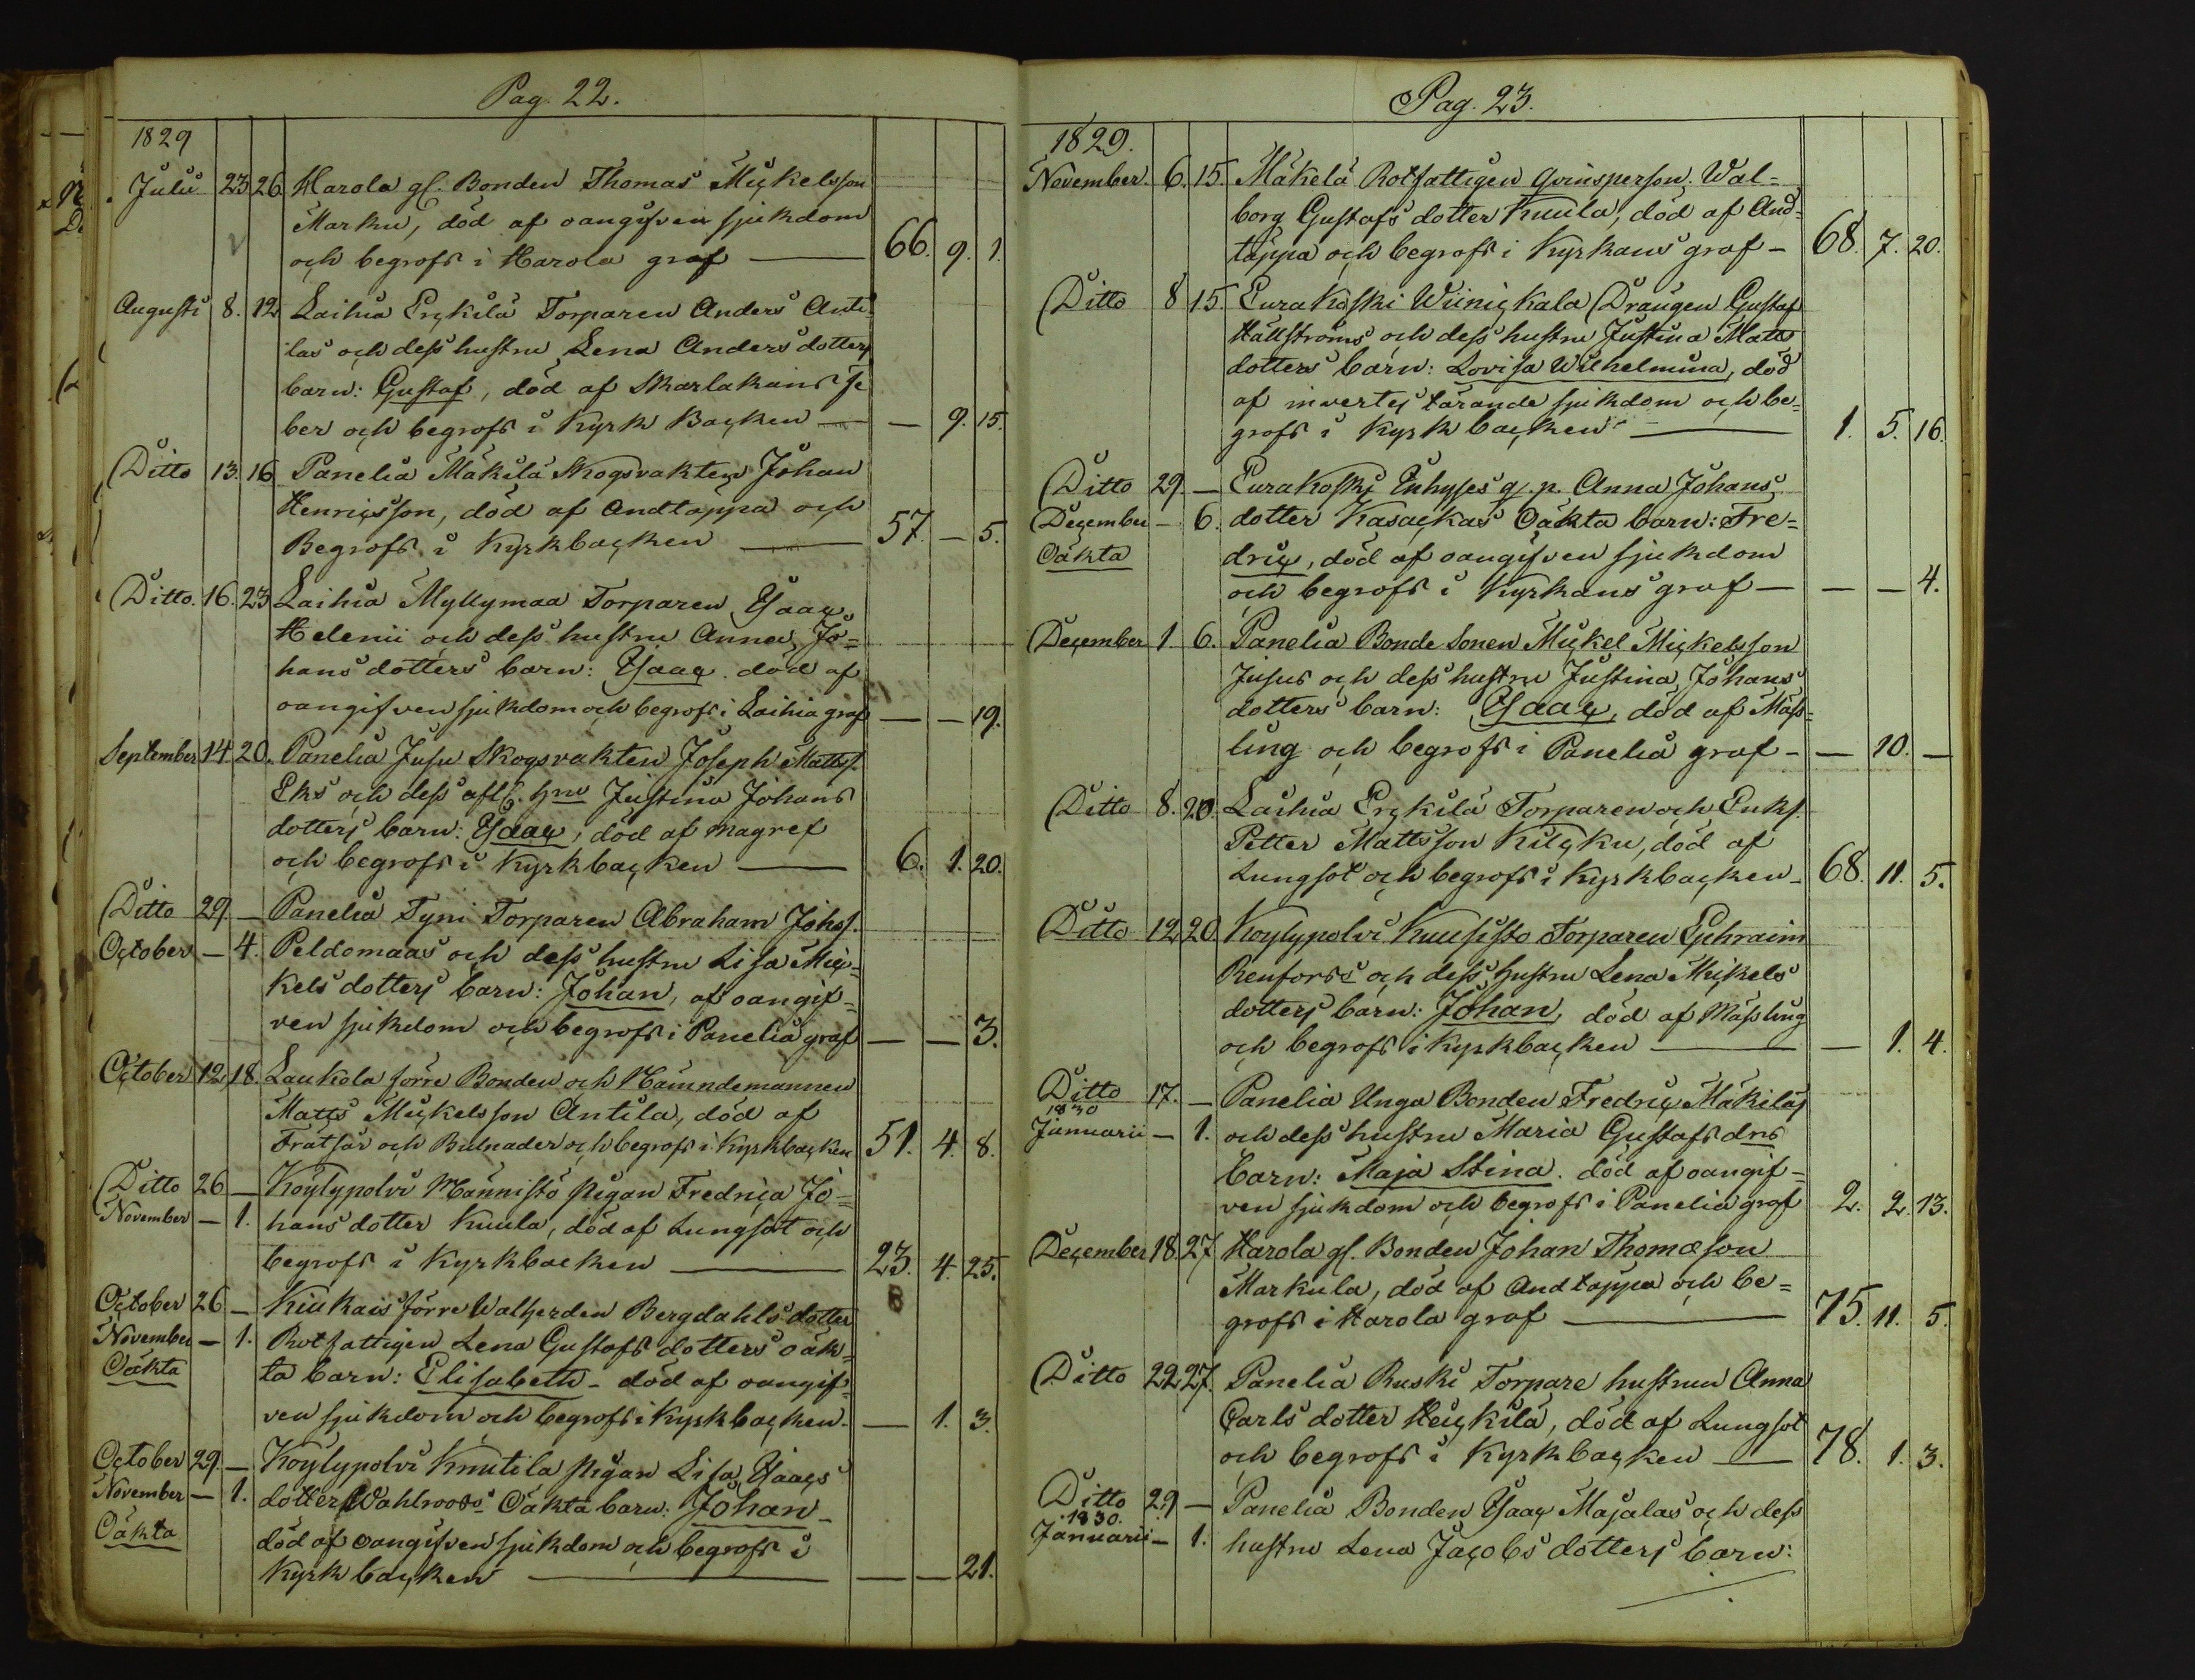 Pag. 22.
1829
Julii 23 26 Harola gl. Bonden Thomas Mickelsson
Marku, död af oangifven sjukdom
och begrofs i Harola graf — 66. 9. 1.
Augusti 8. 12 Laihia Erckilä Torparen Anders Anti
las och dess hustru Lena Anders dotters
barn: Gustaf, död af Skarlakans fe
ber och begrofs i Kyrk Backen — — 9. 15.
Ditto 13. 16 Panelia Mäkilä Skogsvakten Johan
Henricsson, död af Andtäppa och
Begrofs i Kyrkbacken — 57. — 5.
Ditto. 16. 23 Laihia Myllymaa Torparen Isaac
Helenii och dess hustru Anna Jo=
hans dotters barn: Isaac. död af
oangifven sjukdom och begrofs i Laihia graf — — 19.
September 14. 20. Panelia Jusu Skogsvakten Joseph Mattss.
Eks och dess afl. hru Justina Johans
dotters barn: Isaac, död af magref
och begrofs i Kyrkbacken — 6. 1. 20.
Ditto 29. — Panelia Tyni Torparen Abraham Johss.
October — 4. Peldomaas och dess hustru Lisa Mic=
kels dotters barn: Johan, af oangif=
ven sjukdom och begrofs i Panelia graf — — 3.
October 12. 18. Laukola förre Bonden och Nämndemannen
Matts Mickelsson Antila, död af
Frätsår och Bulnader och begrofs i Kyrkbacken 51. 4. 8.
Ditto 26 — Köylypolvi Männistö Pigan Fredrica Jo=
November — 1. hans dotter Kuula, död af Lungsot och
begrofs i Kyrkbacken — 23. 4. 25.
October 26 — Kiukais förre Walherden Bergdahls dotter
November — 1. Rotfattigen Lena Gustafs dotters oäk=
Oäkta ta barn: Elisabeth - död af oangif=
ven sjukdom och begrofs i Kyrkbacken. — 1. 3.
October 29. — Köylypolvi Knutila Pigan Lisa Isaacs
November — 1. dotter Wahlroos's Oäkta barn: Johan -
Oäkta död af oangifven sjukdom och begrofs i
Kyrk backen — — — 21.
Pag. 23.
1829.
November. 6. 15. Mäkelä Rotfattigen qvinsperson. Wal=
borg Gustafs dotter Kuula, död af And=
täppa och begrofs i Kyrkans graf - 68. 7. 20.
Ditto 8 15. Eurakoski Wiinickala Drängen Gustaf
Hällströms och dess hustru Justina Matts
dotters barn: Lovisa Wilhelmina, död
af invertes tärande sjukdom och be=
grofs i Kyrk backen — 1. 5. 16.
Ditto 29. — Eurakoski Inhyses q. p. Anna Johans
December — 6. dotter Kasackas Oäkta barn: Fre=
Oäkta dric, död af oangifven sjukdom
och begrofs i Kyrkans graf — — — 4.
December 1 6. Panelia Bonde Sonen Mickel Mickelsson
Jusus och dess hustru Justina Johans
dotters barn: Isaac, död af Mäss=
ling och begrofs i Panelia graf - — 10. —
Ditto 8. 20. Laihia Erckilä Torparen och Enkl.
Petter Mattsson Kilcku, död af
Lungsot och begrofs i Kyrkbacken - 68. 11. 5.
Ditto 12 20. Köylypolvi Kuusisto Torparen Ephraim
Renfors's och dess hustru Lena Mickels
dotters barn: Johan, död af Mässling
och begrofs i Kyrkbacken — — 1. 4.
Ditto 17. — Panelia Unga Bonden Fredric Mäkiläs
1830
Januarii — 1. och dess hustru Maria Gustafs drs
barn: Maja Stina. död af oangif=
ven sjukdom och begrofs i Panelia graf 2. 2. 13.
December 18 27 Harola gl. Bonden Johan Thomæson
Markula, död af Andtäppa och be=
grofs i Harola graf — 75. 11. 5.
Ditto 22 27. Panelia Ruski Torpare hustrun Anna
Carls dotter Heickilä, död af Lungsot
och begrofs i Kyrkbacken — 78. 1. 3.
Ditto 29 — Panelia Bonden Isaac Majalas och dess
1830.
Januarii — 1. hustru Lena Jacobs dotters barn: